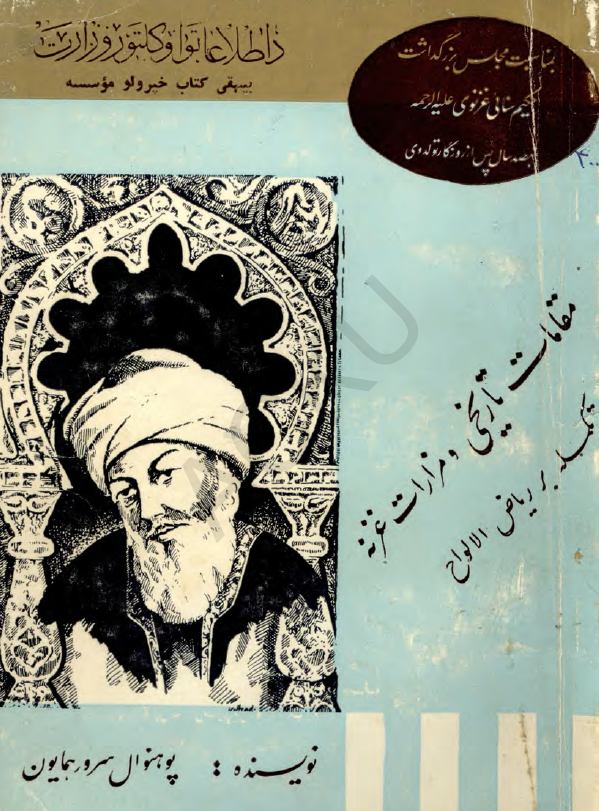 د اطلاعاتو او کلتور وزارت
بیهقی کتاب خپرولو مؤسسه
بمناسبت مجلس بزرگداشت
حکیم سنائی غزنوی علیه الرحمه
نهصد سال پس از روزگار تولد وی
مقامات تاریخی و مزارات غزنه
تکمله بر ریاض الالواح
نویسنده : پوهنوال سرور همایون